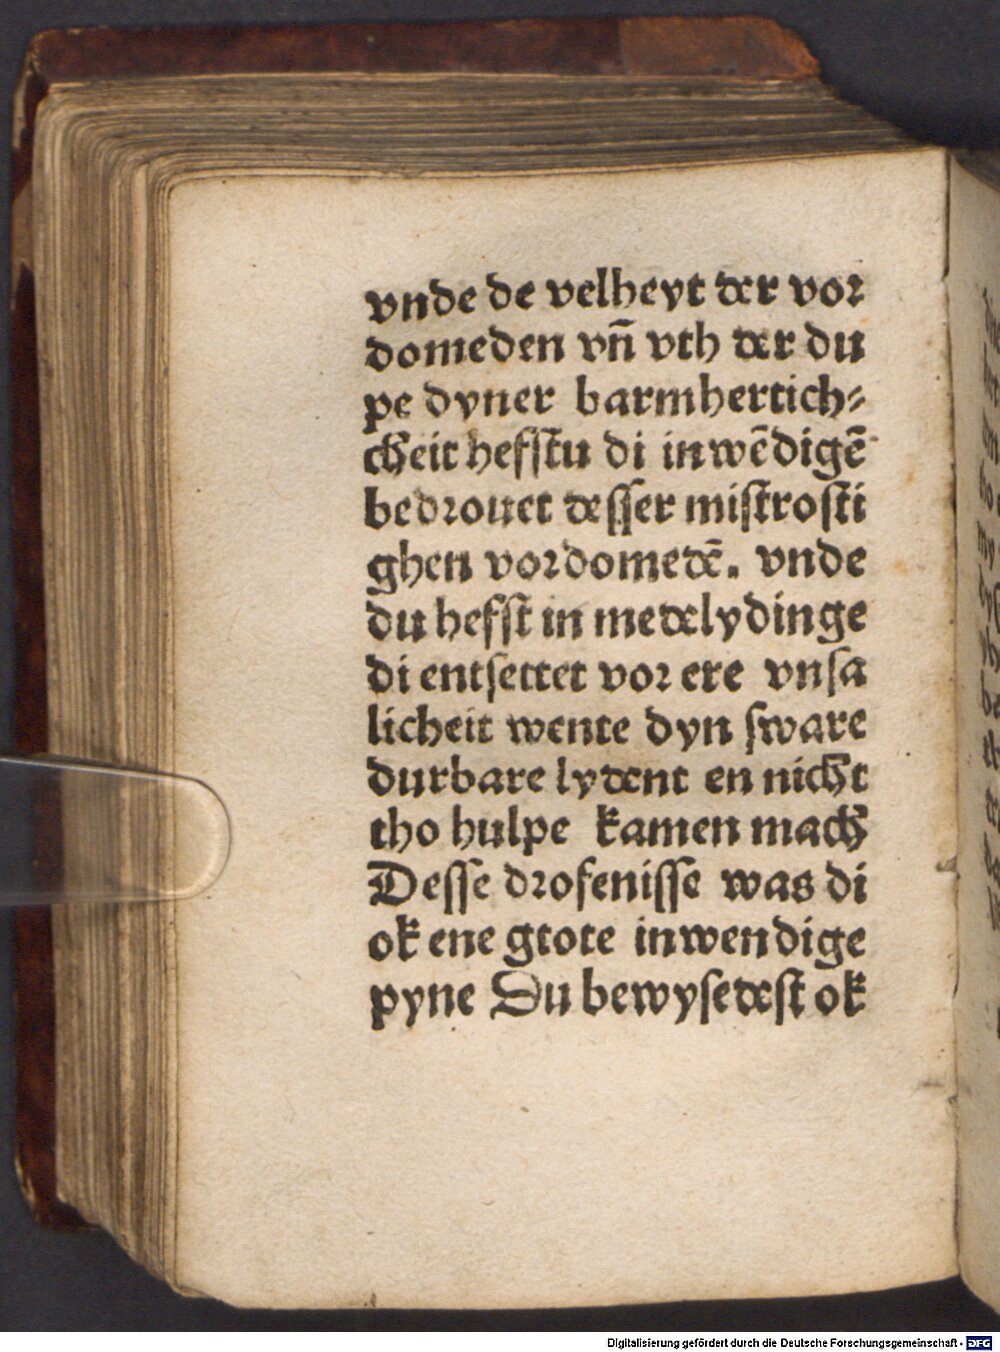 vnde de velheyt der vor
domeden vn̄ vth der du
pe dyner barmhertich⸗
cheit hefstu di inwēdigē
bedrouet desser mistrosti
ghen vordomedē. vnde
du hefst in medelydinge
di entsettet vor ere vnsa
licheit wente dyn sware
durbare lydent en nicht
tho hulpe kamen mach
Desse drofenisse was di
ok ene gtote inwendige
pyne Du bewysedest ok
Digitalisierung gefördert durch die Deutsche Forschungsgemeinschaft - DFG